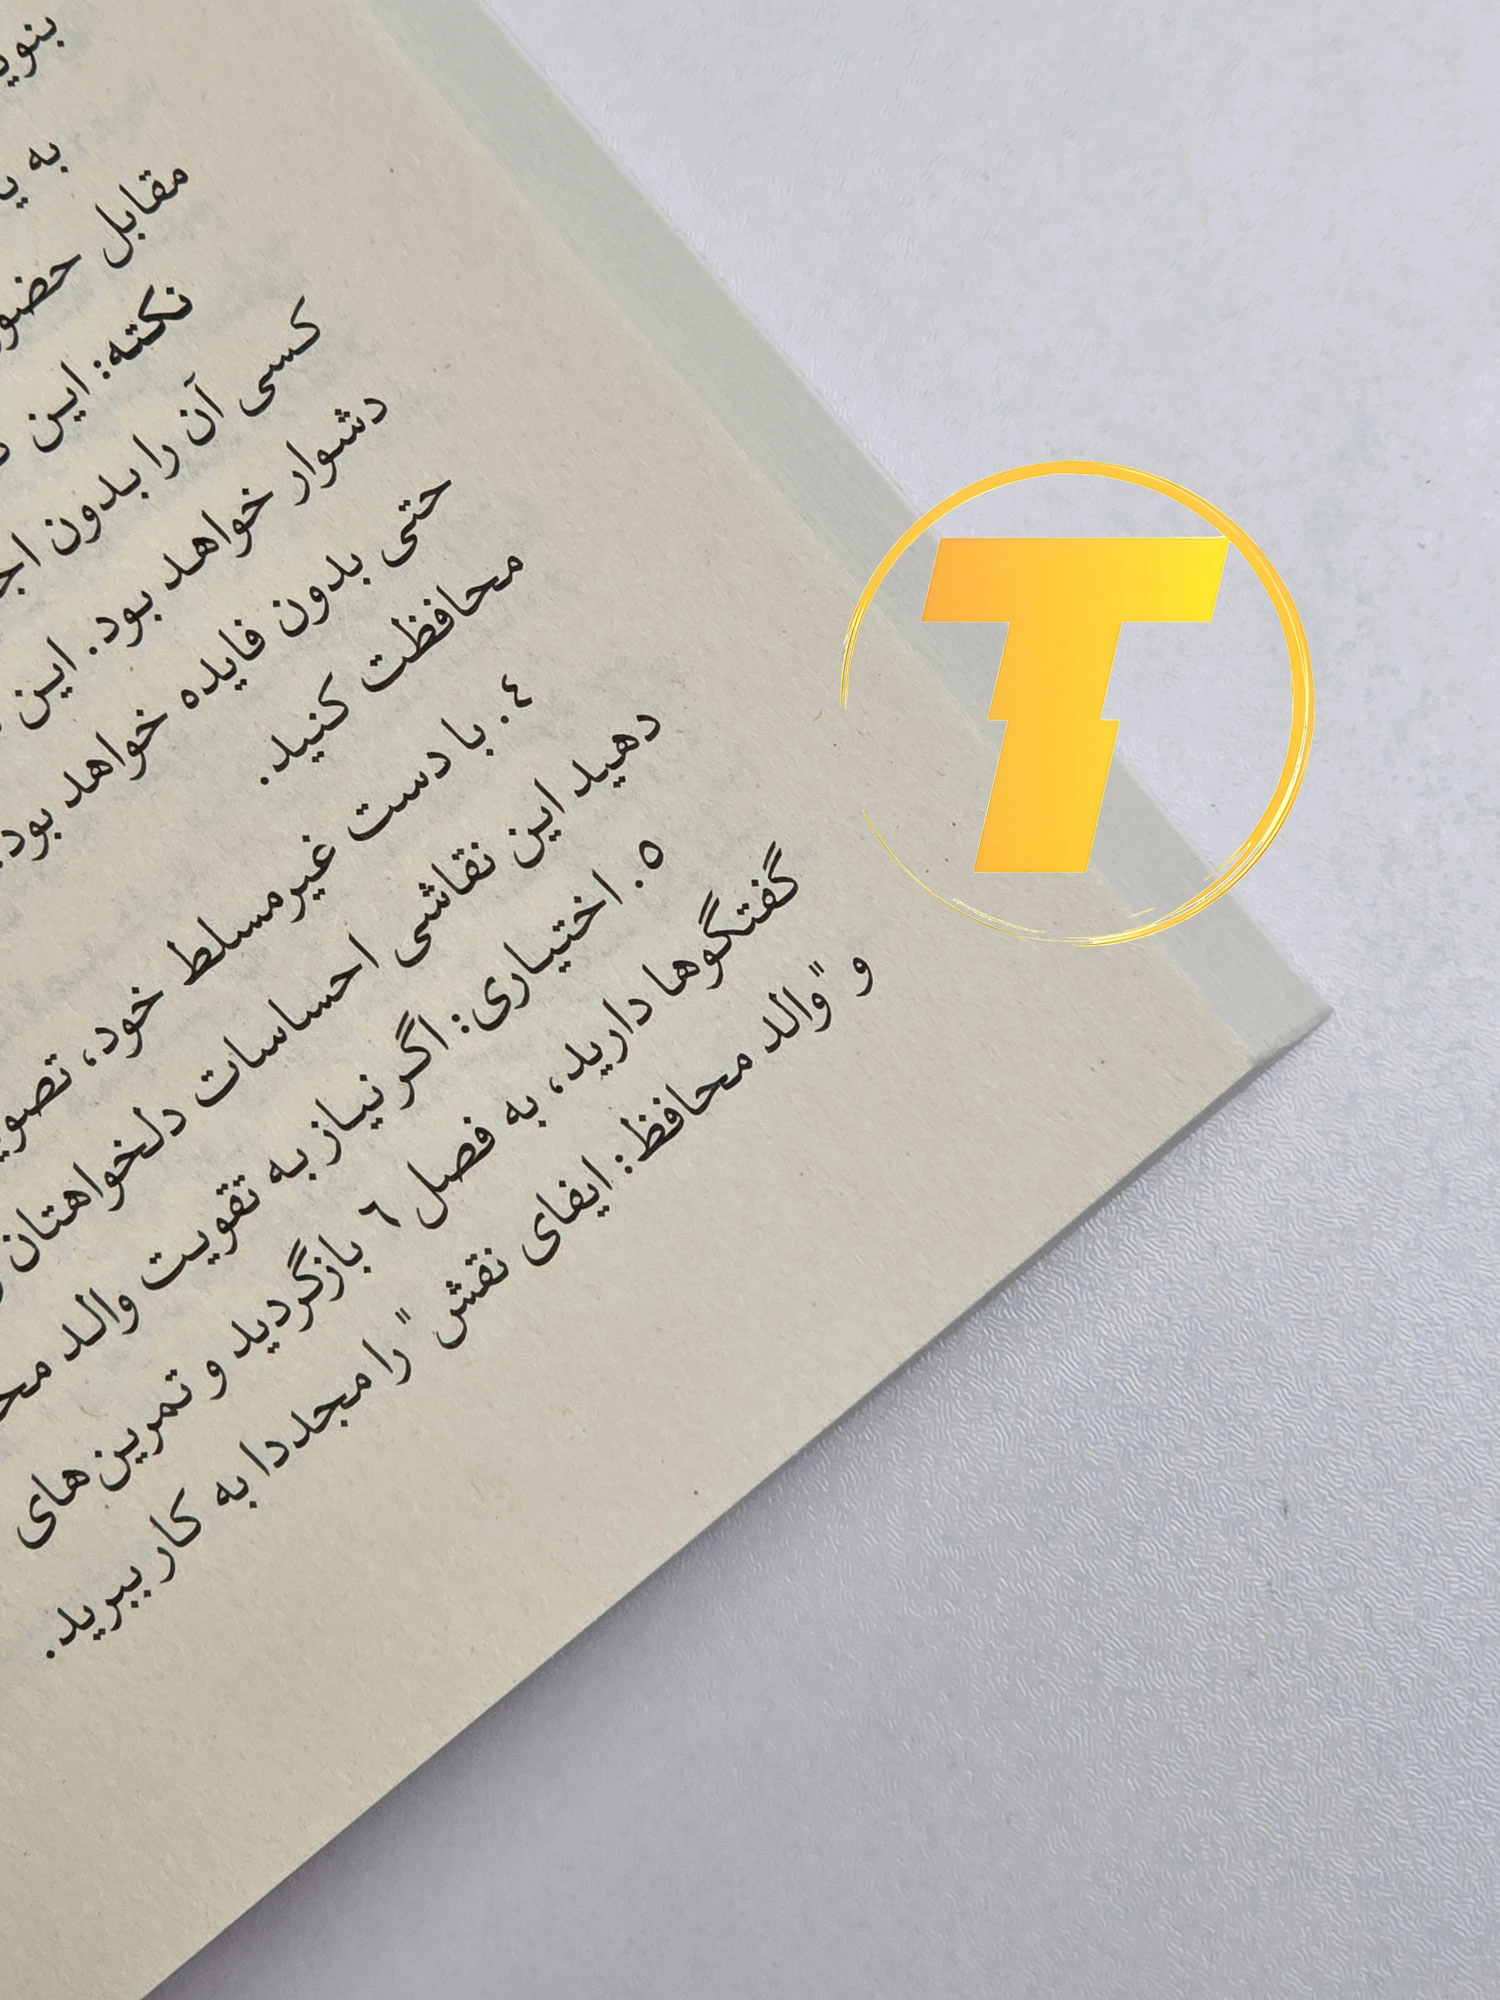 به
مقابل
نکته: این
کسی آن را بدون
دشوار خواهد بود. این
حتی بدون فایده خواهد بود.
محافظت کنید.
٤. با دست غیرمسلط خود،
دهید این نقاشی احساسات دلخواهتان
٥. اختیاری: اگر نیاز به تقویت والد
گفتگوها دارید، به فصل ٦ بازگردید و تمرین های
و "والد محافظ: ایفای نقش" را مجددا به کار ببرید.
T